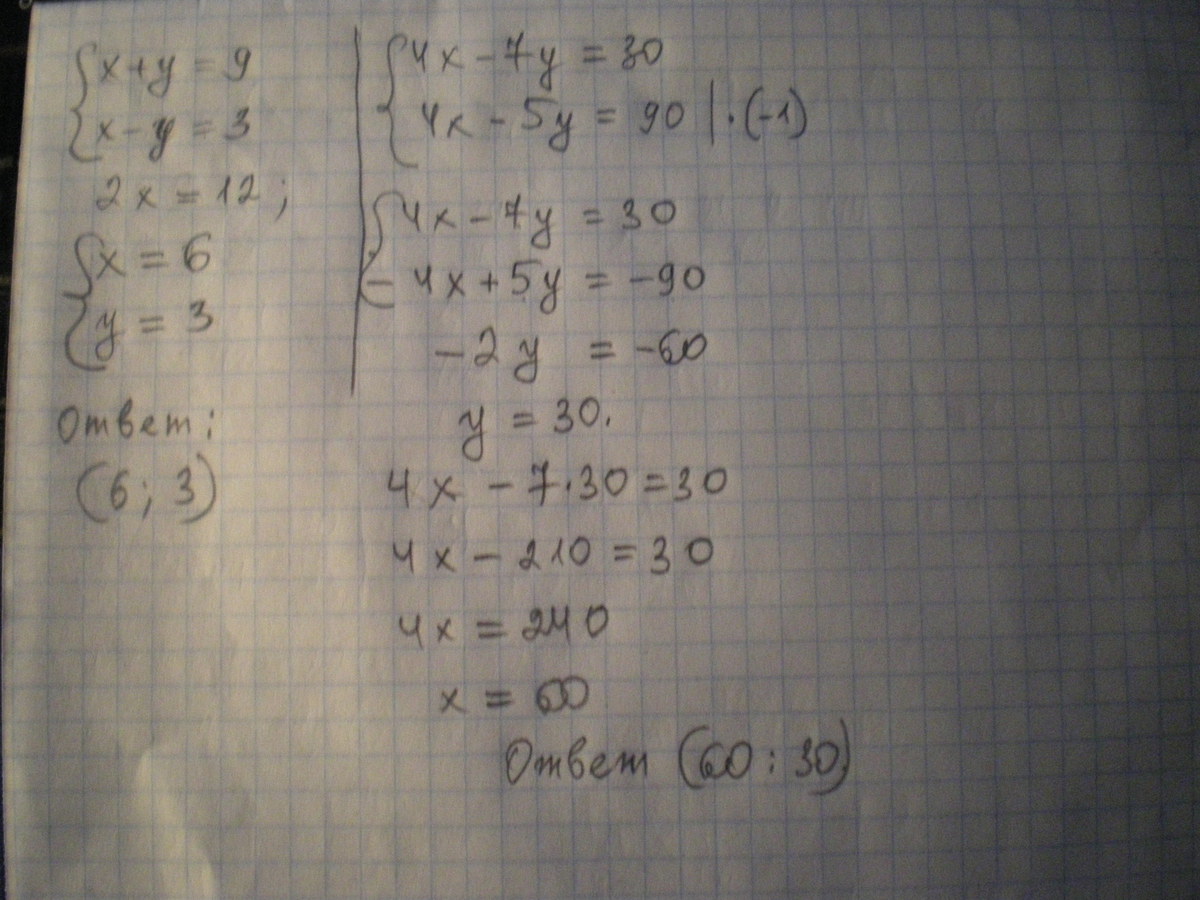 x + y = 9
x - y = 3
2x = 12;
x = 6
y = 3
Ответ:
(6; 3)
4x - 7y = 30
4x - 5y = 90 | · (-1)
4x - 7y = 30
- 4x + 5y = -90
-2y = -60
y = 30.
4x - 7·30 = 30
4x - 210 = 30
4x = 240
x = 60
Ответ (60; 30)